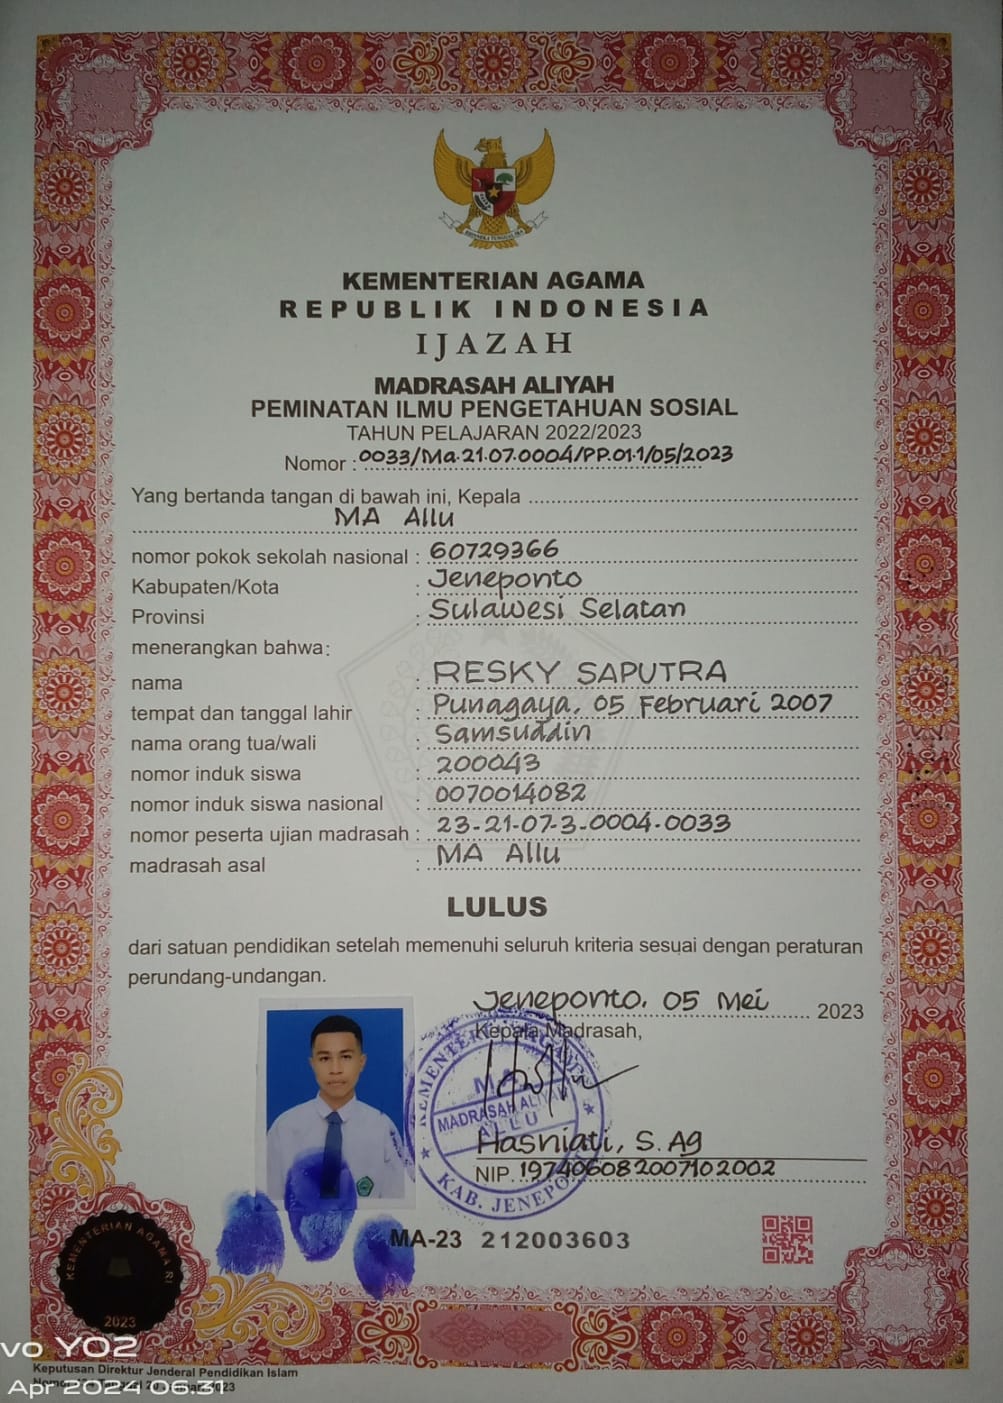 KEMENTERIAN AGAMA
REPUBLIK INDONESIA
IJAZAH
MADRASAH ALIYAH
PEMINATAN ILMU PENGETAHUAN SOSIAL
TAHUN PELAJARAN 2022/2023
Nomor : 0033/Ma.21.07.0004/PP.01.1/05/2023
Yang bertanda tangan di bawah ini, Kepala
MA Allu
nomor pokok sekolah nasional : 60729366
Kabupaten/Kota : Jeneponto
Provinsi : Sulawesi Selatan
menerangkan bahwa:
nama : RESKY SAPUTRA
tempat dan tanggal lahir : Punagaya, 05 Februari 2007
nama orang tua/wali : Samsuddin
nomor induk siswa : 200043
nomor induk siswa nasional : 0070014082
nomor peserta ujian madrasah : 23-21-07-3-0004-0033
madrasah asal : MA Allu
LULUS
dari satuan pendidikan setelah memenuhi seluruh kriteria sesuai dengan peraturan
perundang-undangan.
Jeneponto, 05 Mei 2023
Kepala Madrasah,
MADRASAH ALIYAH
ALLU
KAB. JENEPONTO
Hasniati, S.Ag
NIP. 197406082007102002
MA-23 212003603
KEMENTERIAN AGAMA RI
2023
vo Y02
Keputusan Direktur Jenderal Pendidikan Islam
Apr 2024 06.31